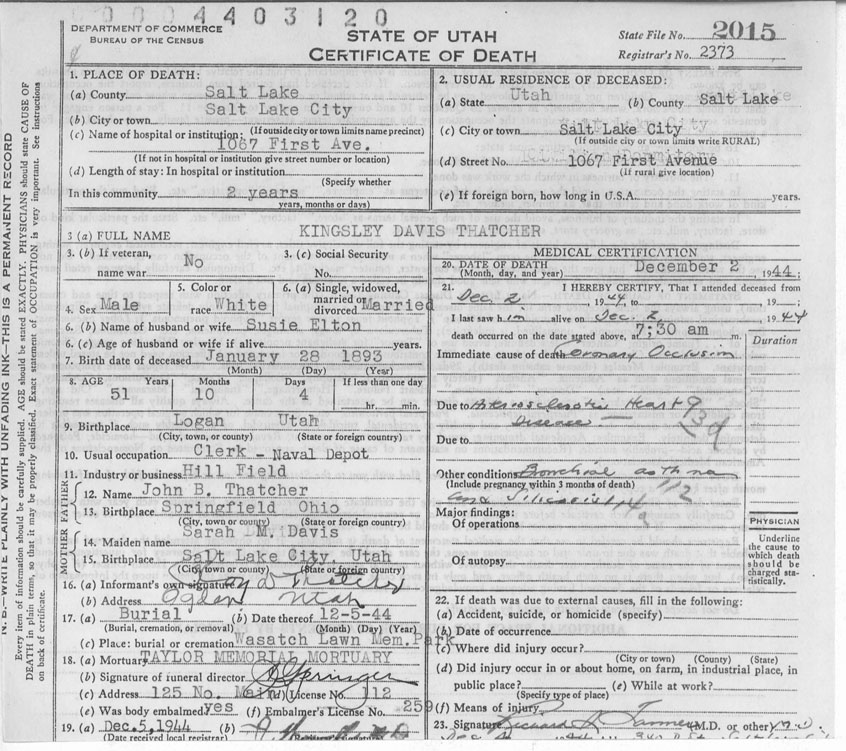 0004403120
DEPARTMENT OF COMMERCE
BUREAU OF THE CENSUS
STATE OF UTAH
CERTIFICATE OF DEATH
State File No. 2015
Registrar's No. 2373
N. B.—WRITE PLAINLY WITH UNFADING INK—THIS IS A PERMANENT RECORD
Every item of information should be carefully supplied. AGE should be stated EXACTLY. PHYSICIANS should state CAUSE OF
DEATH in plain terms, so that it may be properly classified. Exact statement of OCCUPATION is very important. See instructions
on back of certificate.
1. PLACE OF DEATH:
(a) County Salt Lake
(b) City or town Salt Lake City
(If outside city or town limits name precinct)
(c) Name of hospital or institution: 1067 First Ave.
(If not in hospital or institution give street number or location)
(d) Length of stay: In hospital or institution
(Specify whether
In this community 2 years
years, months or days)
2. USUAL RESIDENCE OF DECEASED:
(a) State Utah (b) County Salt Lake
(c) City or town Salt Lake City
(If outside city or town limits write RURAL)
(d) Street No. 1067 First Avenue
(If rural give location)
(e) If foreign born, how long in U.S.A. years.
3 (a) FULL NAME KINGSLEY DAVIS THATCHER
3. (b) If veteran, name war No
3. (c) Social Security No.
4. Sex Male
5. Color or race White
6. (a) Single, widowed, married or divorced Married
6. (b) Name of husband or wife Susie Elton
6. (c) Age of husband or wife if alive years.
7. Birth date of deceased January 28 1893
(Month) (Day) (Year)
8. AGE Years Months Days If less than one day
51 10 4 hr. min.
9. Birthplace Logan Utah
(City, town, or county) (State or foreign country)
10. Usual occupation Clerk - Naval Depot
11. Industry or business Hill Field
FATHER
12. Name John B. Thatcher
13. Birthplace Springfield Ohio
(City, town or county) (State or foreign country)
MOTHER
14. Maiden name Sarah M. Davis
15. Birthplace Salt Lake City, Utah
(City, town or county) (State or foreign country)
16. (a) Informant's own signature D Thatcher
(b) Address Ogden Utah
17. (a) Burial (b) Date thereof 12-5-44
(Burial, cremation, or removal) (Month) (Day) (Year)
(c) Place: burial or cremation Wasatch Lawn Mem. Park
18. (a) Mortuary TAYLOR MEMORIAL MORTUARY
(b) Signature of funeral director Springer
(c) Address 125 No. Main (d) License No. 112
(e) Was body embalmed yes (f) Embalmer's License No. 259
19. (a) Dec. 5, 1944 (b)
(Date received local registrar)
MEDICAL CERTIFICATION
20. DATE OF DEATH
(Month, day, and year) December 2, 1944;
21. I HEREBY CERTIFY, That I attended deceased from
Dec. 2, 1944, to , 19 ;
I last saw him alive on Dec. 2, 1944
death occurred on the date stated above, at 7;30 am m.
Duration
Immediate cause of death Coronary Occlusion
Due to Arteriosclerotic Heart
Disease —
Due to
Other conditions Bronchial asthma
(Include pregnancy within 3 months of death)
and Silicosis
112
Major findings:
Of operations
Of autopsy
PHYSICIAN
Underline
the cause to
which death
should be
charged sta-
tistically.
22. If death was due to external causes, fill in the following:
(a) Accident, suicide, or homicide (specify)
(b) Date of occurrence
(c) Where did injury occur?
(City or town) (County) (State)
(d) Did injury occur in or about home, on farm, in industrial place, in
public place? (e) While at work?
(Specify type of place)
(f) Means of injury
23. Signature Richard (M.D. or other) M.D.